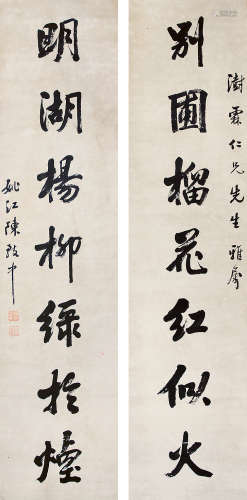 澍霖仁兄先生雅屬
別圃榴花紅似火
明湖楊柳綠於煙
姚江陳